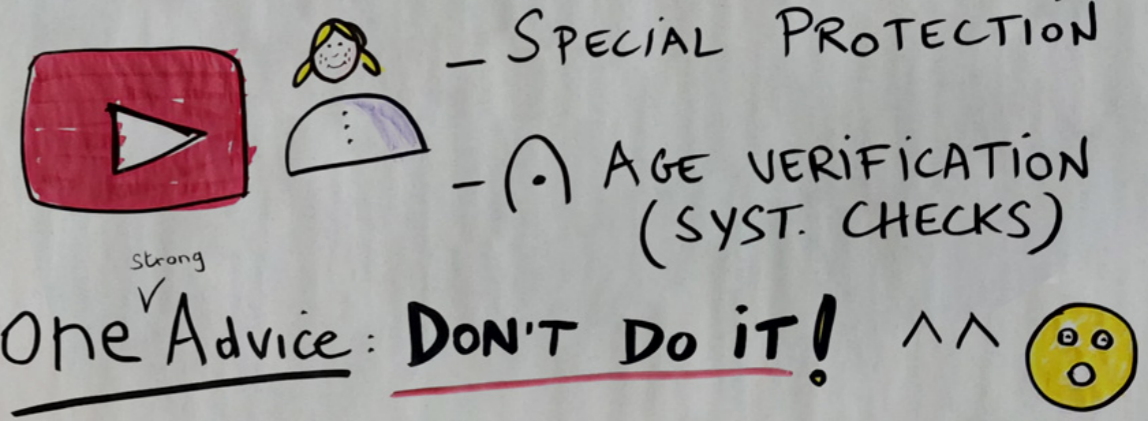 - SPECIAL PROTECTION
- AGE VERIFICATION
(SYST. CHECKS)
Strong
One Advice: DON'T DO IT! ^^